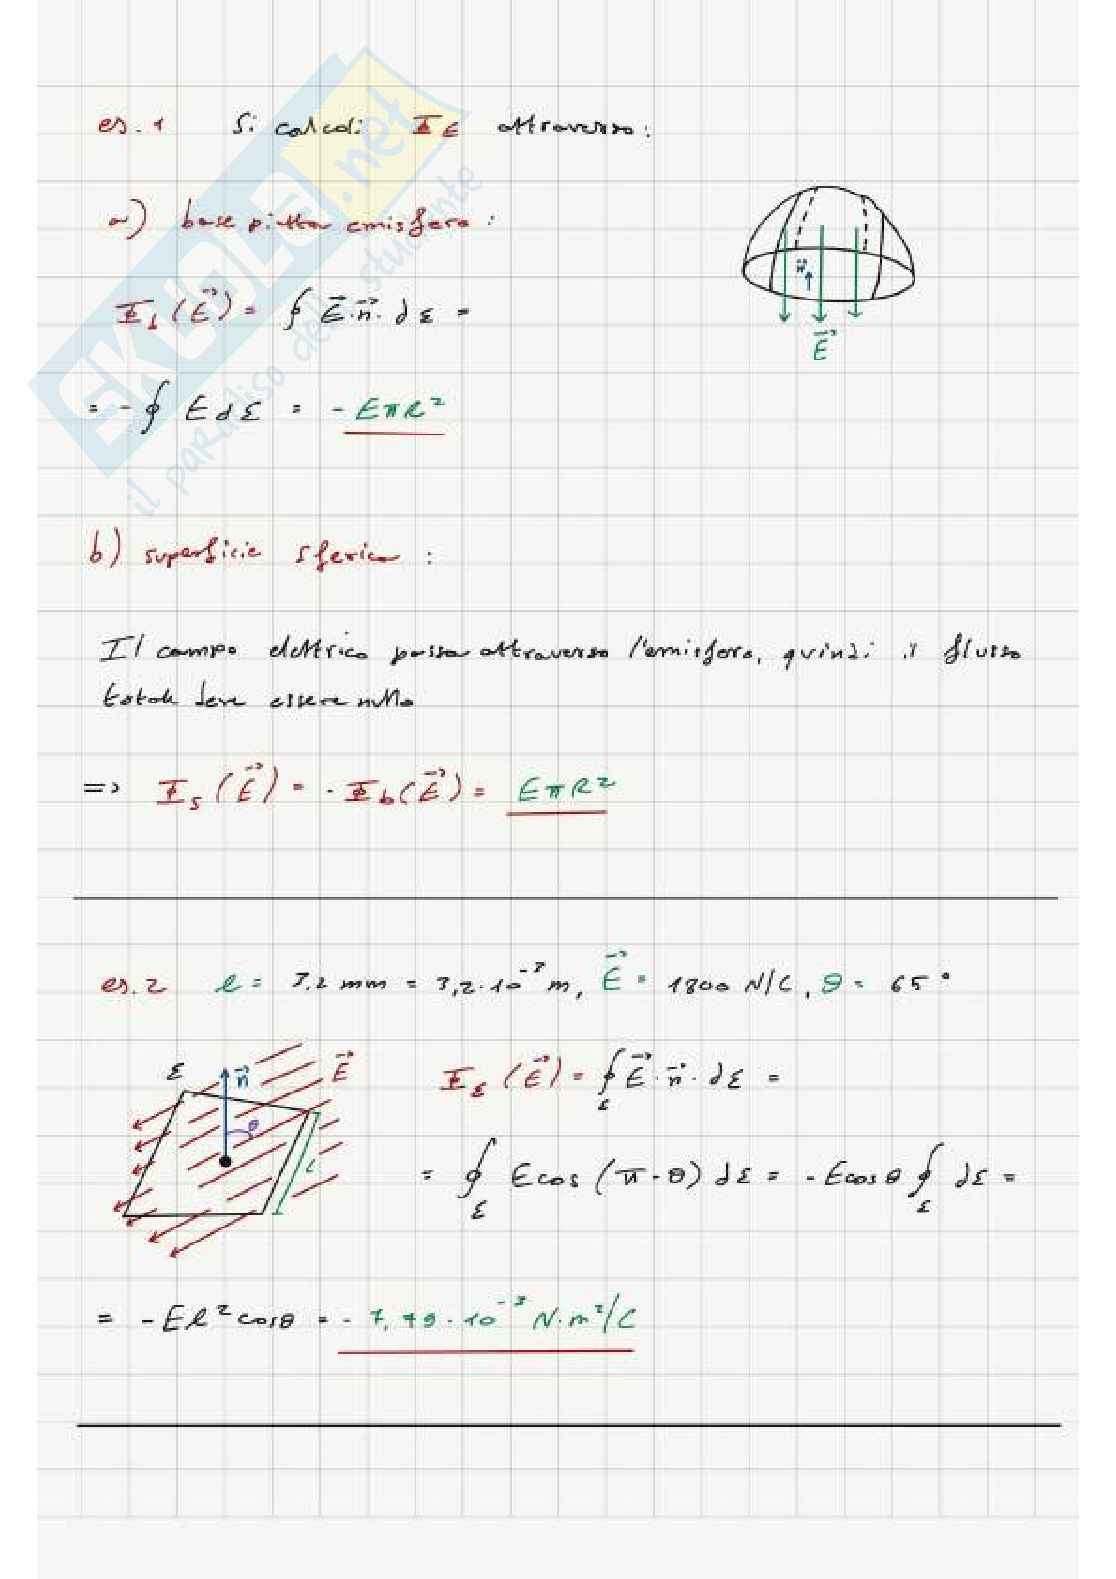 es. 1 Si calcoli Φ_E attraverso:
a) base piatta emisfero:
Φ_b (E⃗) = ∮ E⃗·n⃗· dΣ =
= -∮ E dΣ = - EπR²
n⃗
E⃗
b) superficie sferica:
Il campo elettrico passa attraverso l'emisfero, quindi il flusso
totale deve essere nullo
=> Φ_s (E⃗) = - Φ_b (E⃗) = EπR²
es. 2 l = 3,2 mm = 3,2·10⁻³ m, E⃗ = 1800 N/C, θ = 65°
Σ n⃗ E⃗ θ l
Φ_Σ (E⃗) = ∮_Σ E⃗·n⃗· dΣ =
= ∮_Σ E cos (π-θ) dΣ = - E cosθ ∮_Σ dΣ =
= - E l² cosθ = - 7,79·10⁻³ N·m²/C
SKUOLA.net
il paradiso dello studente